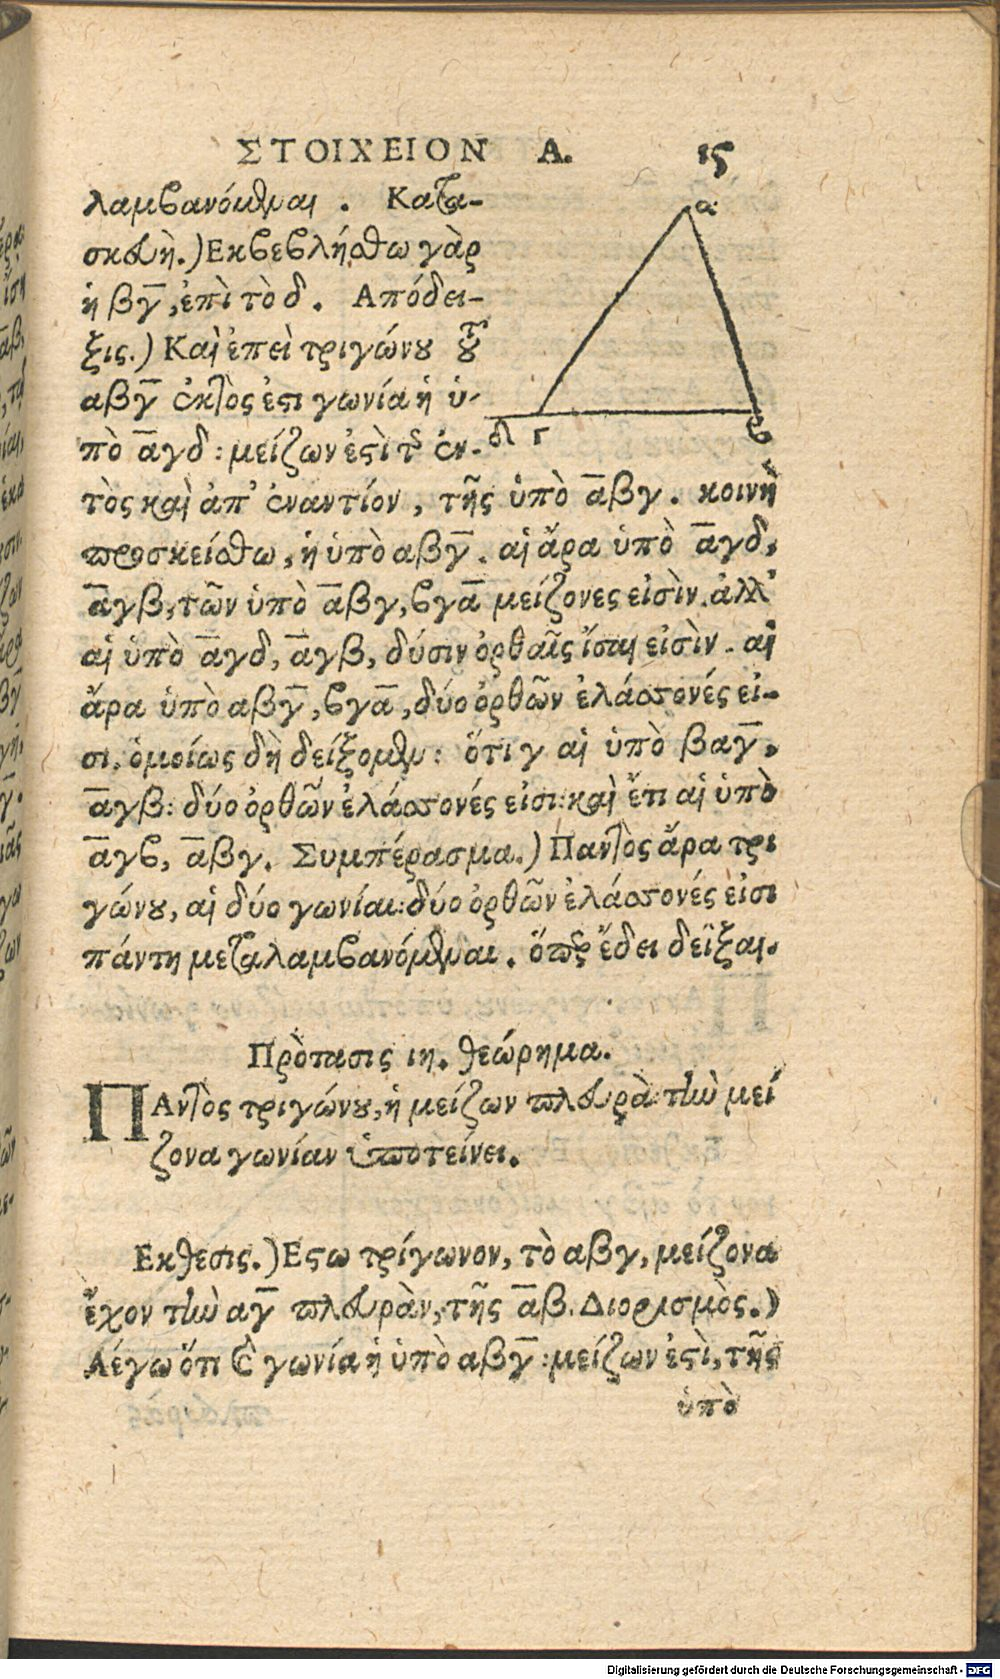 ΣΤΟΙΧΕΙΟΝ Α. ις
λαμβανόμεναι . Κατα-
σκευὴ.) Εκβεβλήσθω γὰρ
ἡ βγ̅, ἐπὶ τὸ δ. Απόδει-
ξις.) Καὶ ἐπεὶ τριγώνου τοῦ
αβγ̅ ἐκτὸς ἐστι γωνία ἡ ὑ-
πὸ α̅γδ : μείζων ἐστὶ τῆς ἐν-
τὸς καὶ ἀπ' ἐναντίον, τῆς ὑπὸ α̅βγ. κοινὴ
προσκείσθω, ἡ ὑπὸ αβγ̅. αἱ ἄρα ὑπὸ α̅γδ,
α̅γβ, τῶν ὑπὸ α̅βγ, βγα̅ μείζονες εἰσὶν. ἀλλ'
αἱ ὑπὸ α̅γδ, α̅γβ, δύσιν ὀρθαῖς ἴσαι εἰσὶν. αἱ
ἄρα ὑπὸ αβγ̅, βγα̅, δύο ὀρθῶν ἐλάσσονές εἰ-
σι. ὁμοίως δὴ δείξομεν: ὅτι γ αἱ ὑπὸ βαγ̅,
α̅γβ: δύο ὀρθῶν ἐλάσσονές εἰσι: καὶ ἔτι αἱ ὑπὸ
α̅γβ, α̅βγ. Συμπέρασμα.) Παντὸς ἄρα τρι
γώνου, αἱ δύο γωνίαι: δύο ὀρθῶν ἐλάσσονές εἰσι
πάντη μεταλαμβανόμεναι. ὅπερ ἔδει δεῖξαι.
Πρότασις ιη. θεώρημα.
ΠΑντὸς τριγώνου, ἡ μείζων πλευρὰ τὴν μεί
ζονα γωνίαν ὑποτείνει.
Εκθεσις.) Εστω τρίγωνον, τὸ αβγ, μείζονα
ἔχον τὴν αγ̅ πλευρὰν, τῆς α̅β. Διορισμὸς.)
Λέγω ὅτι καὶ γωνία ἡ ὑπὸ αβγ̅: μείζων ἐστὶ, τῆς
ὑπὸ
α
δ γ β
Digitalisierung gefördert durch die Deutsche Forschungsgemeinschaft - DFG